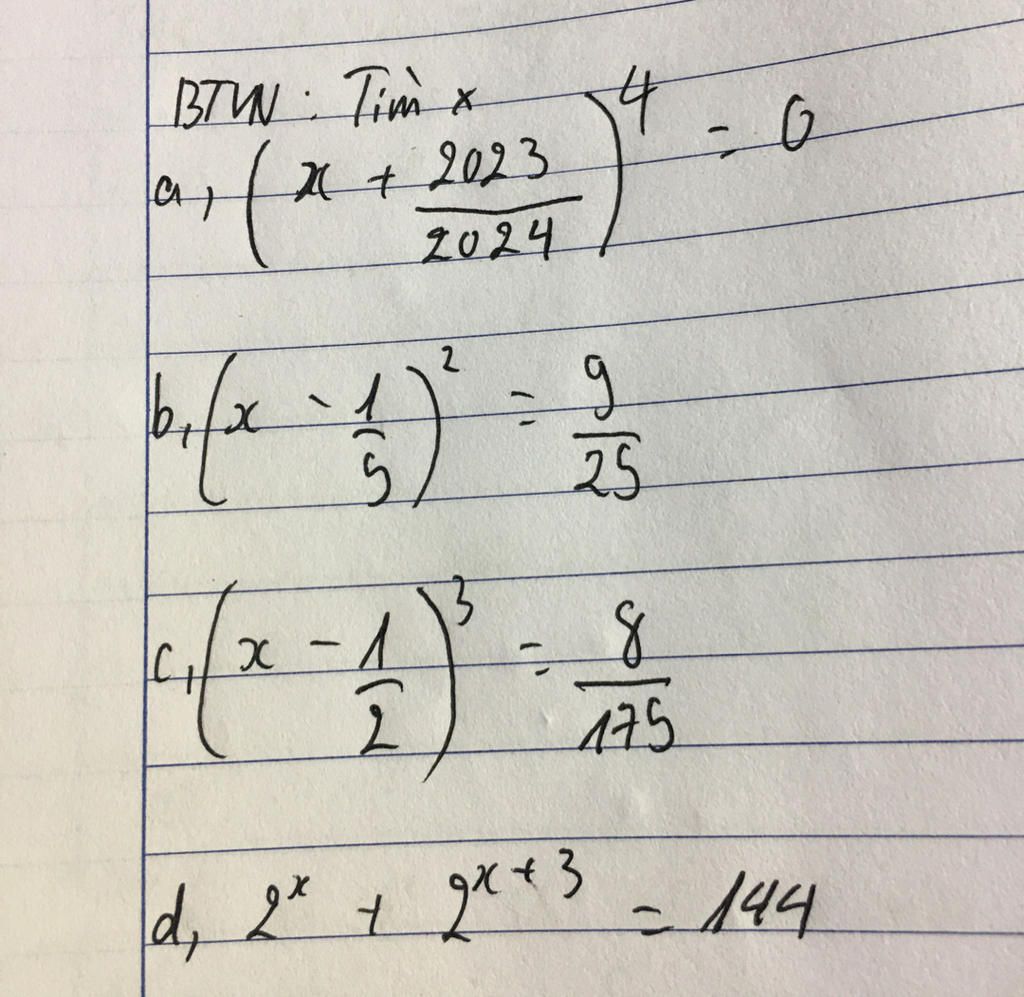 BTVN : Tìm x
a, (x + 2023/2024)^4 = 0
b, (x - 1/5)^2 = 9/25
c, (x - 1/2)^3 = 8/175
d, 2^x + 2^(x+3) = 144